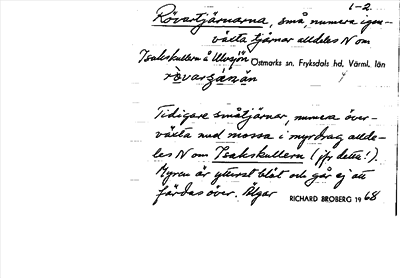 1-2
Rövartjärnarna, små, numera igen-
växta tjärnar alldeles N om
Isakskullern å Ulvsjön Östmarks sn. Fryksdals hd. Värml. län
rövargänan
Tidigare småtjärnar, numera över-
växta med mossa i myrdrag allde-
les N om Isakskullern (jfr detta!).
Myren är ytterst blöt och går ej att
färdas över. Älgar RICHARD BROBERG 1968